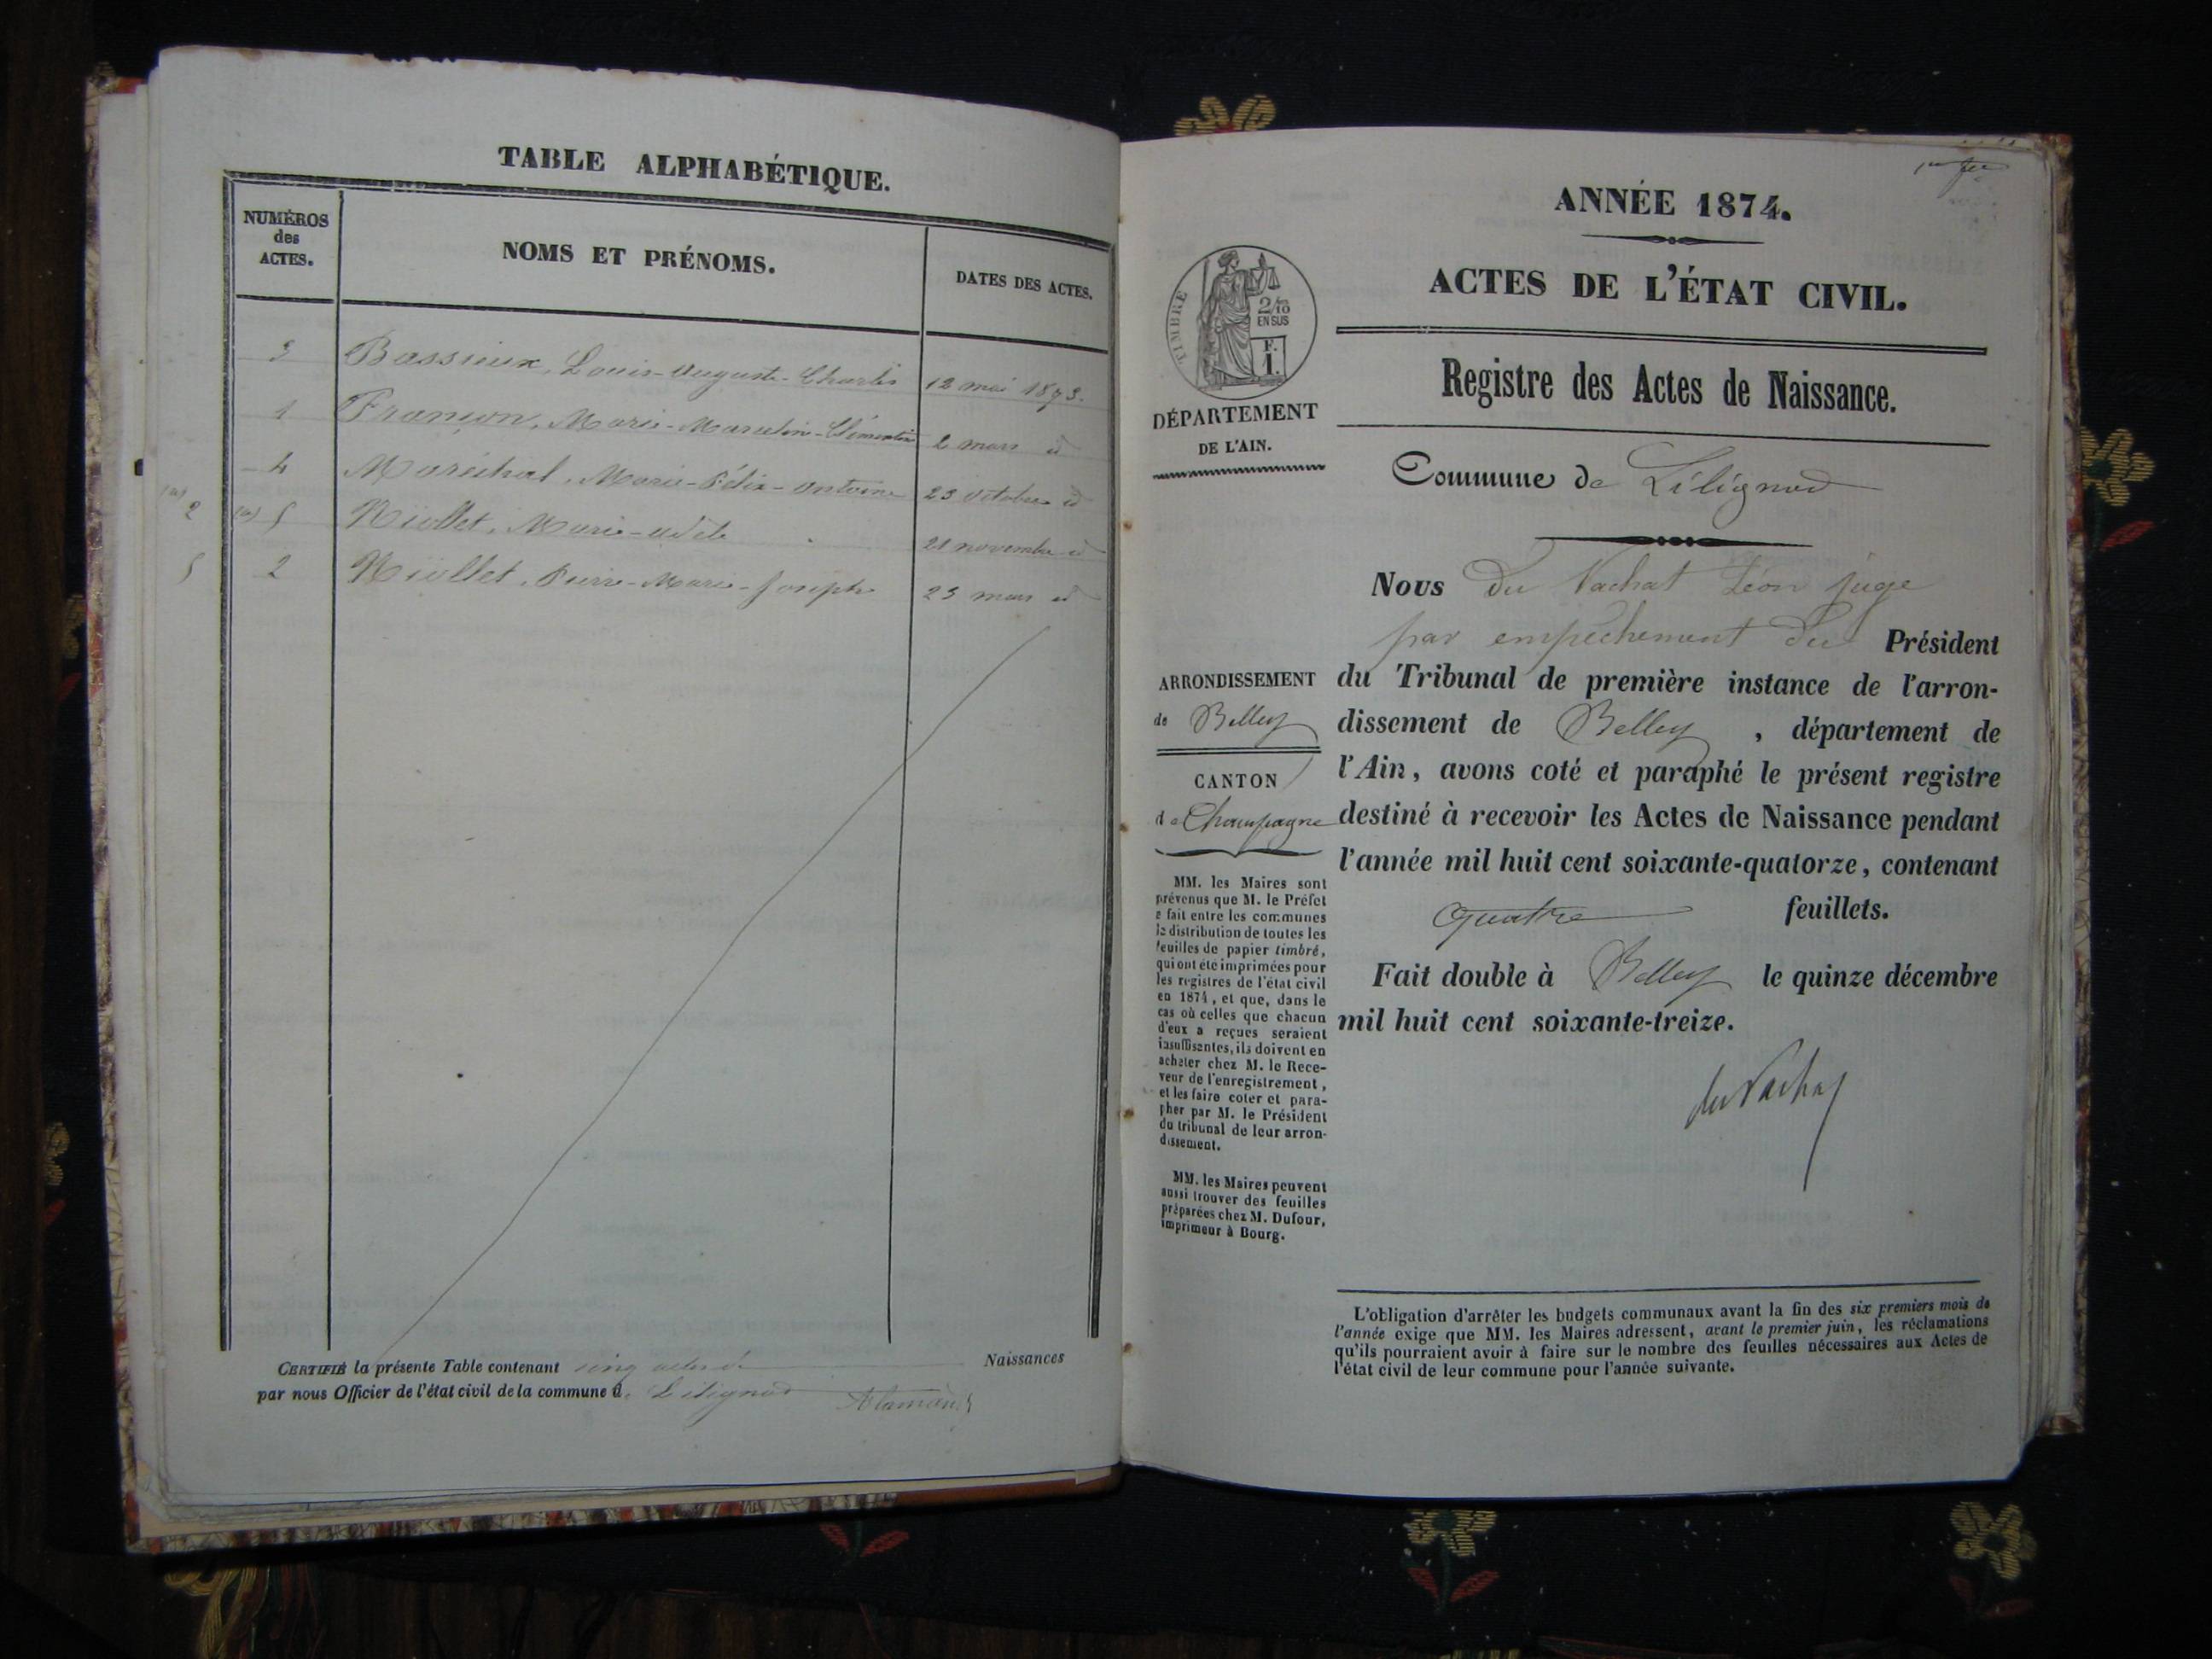 TABLE ALPHABÉTIQUE.
NUMÉROS
des
ACTES.
NOMS ET PRÉNOMS.
DATES DES ACTES.
3 Bassieux, Louis-Auguste-Charles 12 mai 1873.
1 Françon, Marie-Marcelin-Clémentin 2 mars id
4 Maréchal, Marie-Félix-Antoine 23 octobre id
2 (a) 5 Niollet, Marie-Adèle 21 novembre id
5 2 Niollet, Pierre-Marie-Joseph 23 mars id
CERTIFIÉ la présente Table contenant cinq actes de Naissances
par nous Officier de l'état civil de la commune d Lilignod
ANNÉE 1874.
ACTES DE L'ÉTAT CIVIL.
TIMBRE
2/10
EN SUS
F.
1.
DÉPARTEMENT
DE L'AIN.
Registre des Actes de Naissance.
Commune de Lilignod
Nous du Vachat Léon juge
par empêchement du Président
du Tribunal de première instance de l'arron-
dissement de Belley, département de
l'Ain, avons coté et paraphé le présent registre
destiné à recevoir les Actes de Naissance pendant
l'année mil huit cent soixante-quatorze, contenant
quatre feuillets.
Fait double à Belley le quinze décembre
mil huit cent soixante-treize.
du Vachat
ARRONDISSEMENT
de Belley
CANTON
de Champagne
MM. les Maires sont
prévenus que M. le Préfet
a fait entre les communes
la distribution de toutes les
feuilles de papier timbré,
qui ont été imprimées pour
les registres de l'état civil
en 1874, et que, dans le
cas où celles que chacun
d'eux a reçues seraient
insuffisantes, ils doivent en
acheter chez M. le Rece-
veur de l'enregistrement,
et les faire coter et para-
pher par M. le Président
du tribunal de leur arron-
dissement.
MM. les Maires peuvent
aussi trouver des feuilles
préparées chez M. Dufour,
imprimeur à Bourg.
L'obligation d'arrêter les budgets communaux avant la fin des six premiers mois de
l'année exige que MM. les Maires adressent, avant le premier juin, les réclamations
qu'ils pourraient avoir à faire sur le nombre des feuilles nécessaires aux Actes de
l'état civil de leur commune pour l'année suivante.